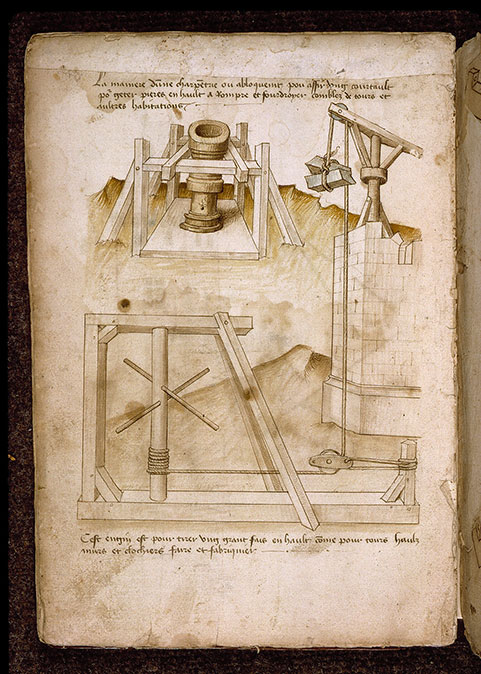 La maniere dune charpetre ou abloquemt pou assir ung courtault
po geter pieres en hault a Rompre et fourdroyer combles de tours et
aultres habitations
Cest engin est pour tirer ung grant fais en hault cōme pour tours haulz
murs et clochiers faire et fabriquier